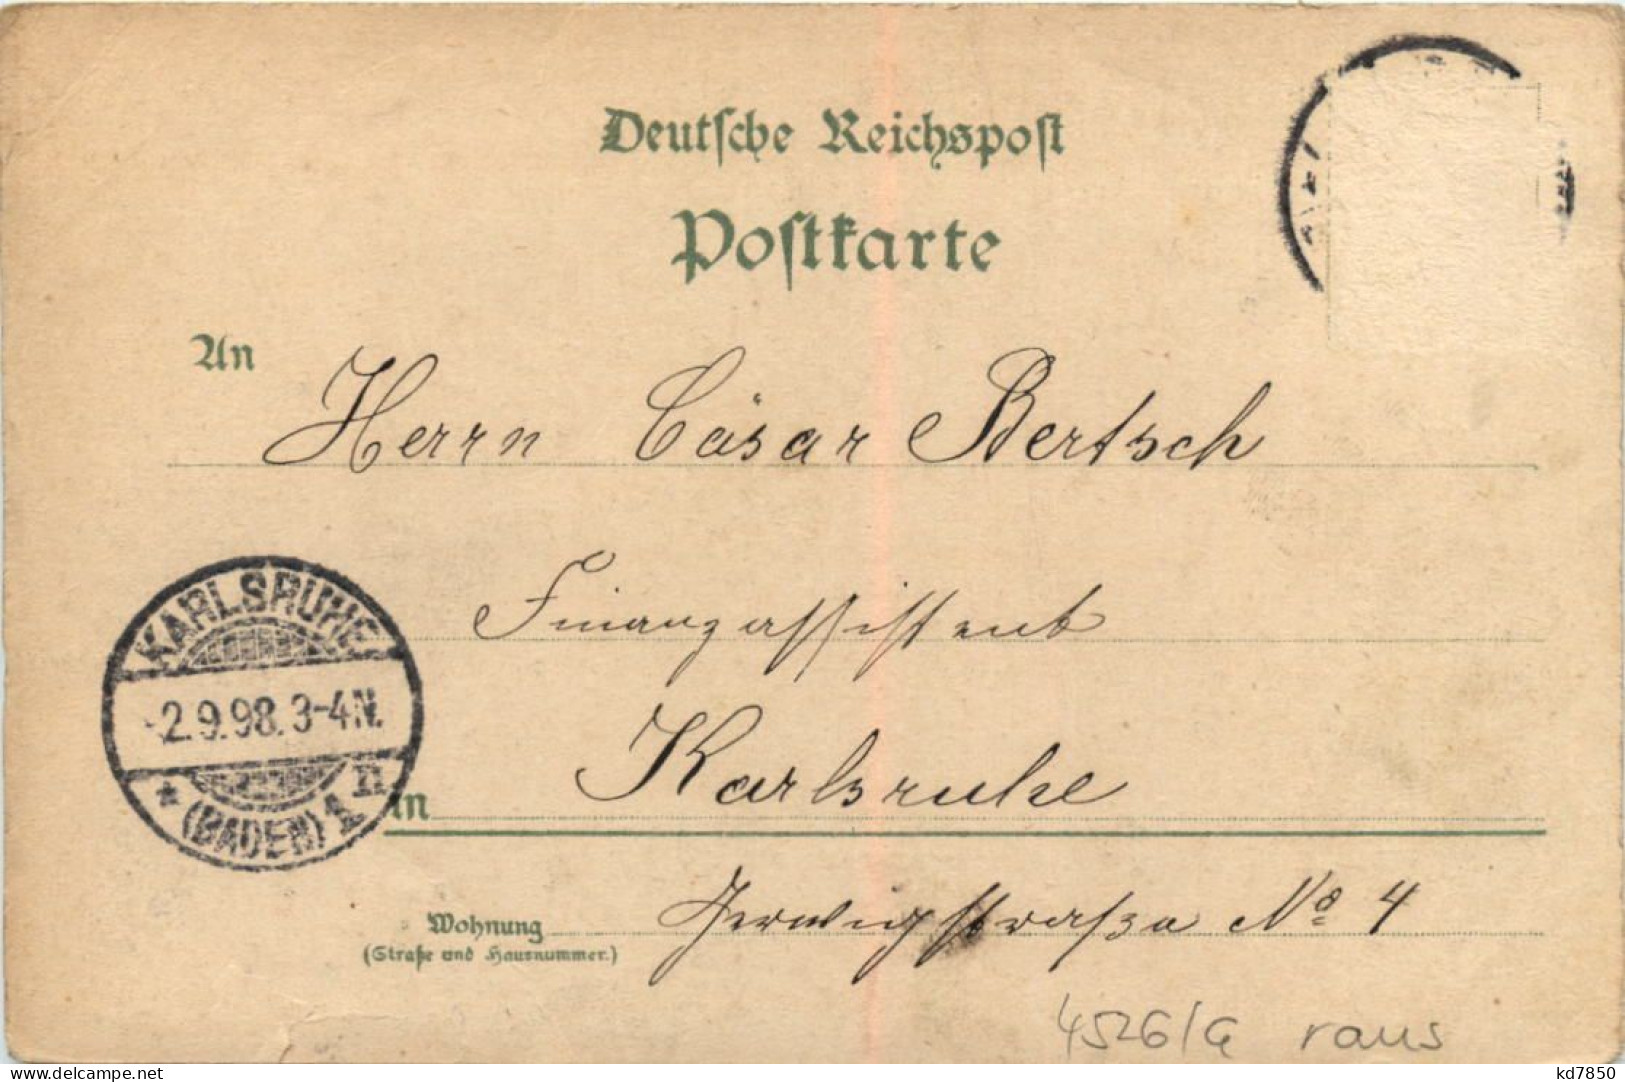 Deutsche Reichspost
Postkarte
An Herrn Cäsar Bertsch
Finanzassistent
KARLSRUHE
-2.9.98.3-4N.
* (BADEN) 1 n
in Karlsruhe
Wohnung Gerwigstraße No 4
(Straße und Hausnummer.)
4526/G raus
kd7850